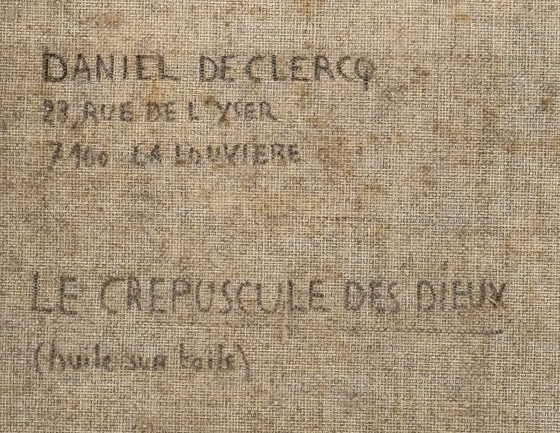 DANIEL DECLERCQ
23, RUE DE L'YSER
7100 LA LOUVIERE
LE CREPUSCULE DES DIEUX
(huile sur toile)